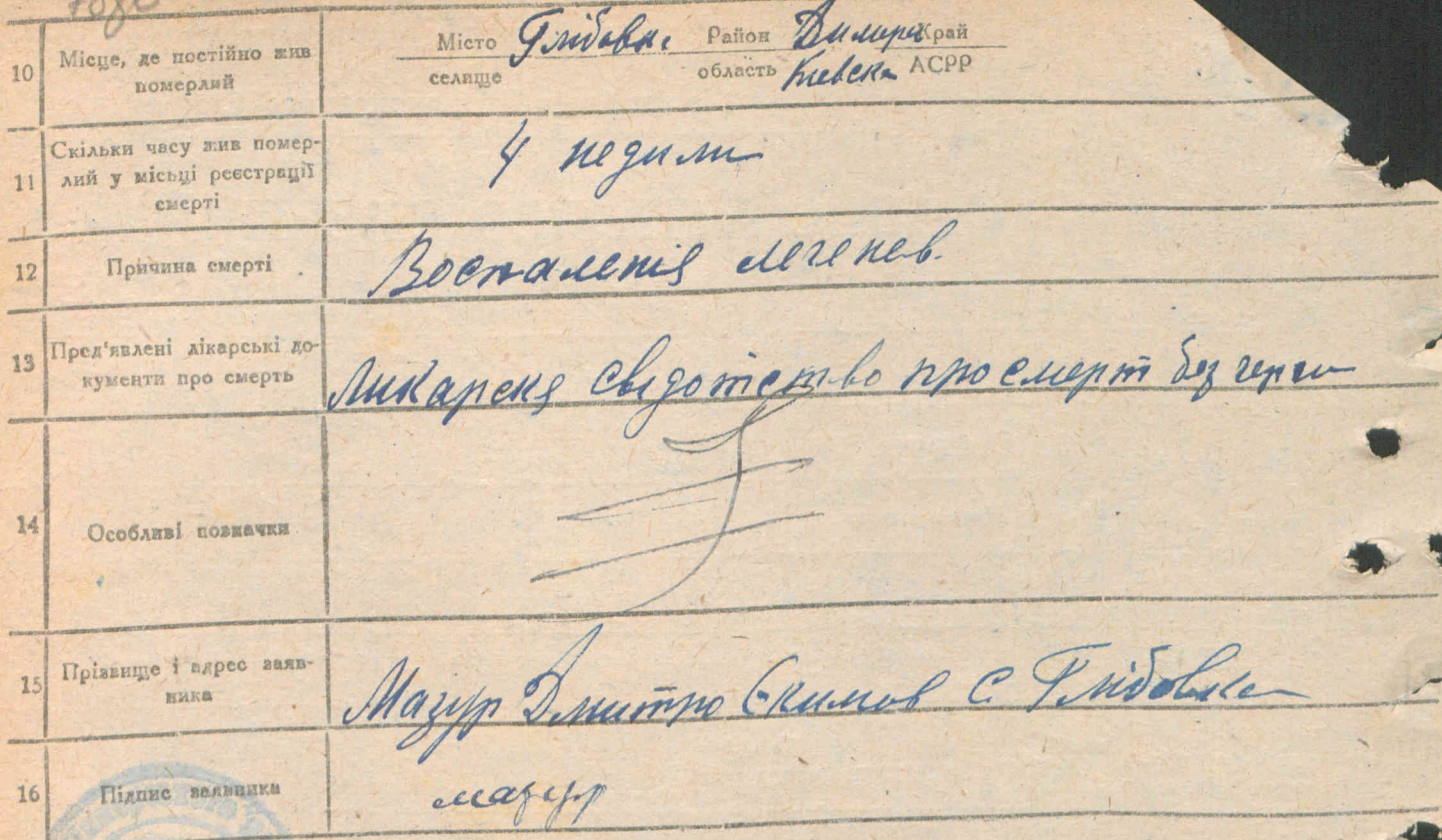 10 Місце, де постійно жив померлий Місто Глібовка Район Димерск Край
селище область Киевска АСРР
11 Скільки часу жив помер-
лий у місьці реєстрації
смерті
4 недили
12 Причина смерті Воспаления легенев.
13 Пред'явлені лікарські до-
кументи про смерть
Ликарскя свидотство про смерт без
14 Особливі позначки
15 Прізвище і адрес заяв-
ника
Мазур Дмитро Єкимов с Глібовка
16 Підпис заявника мазур